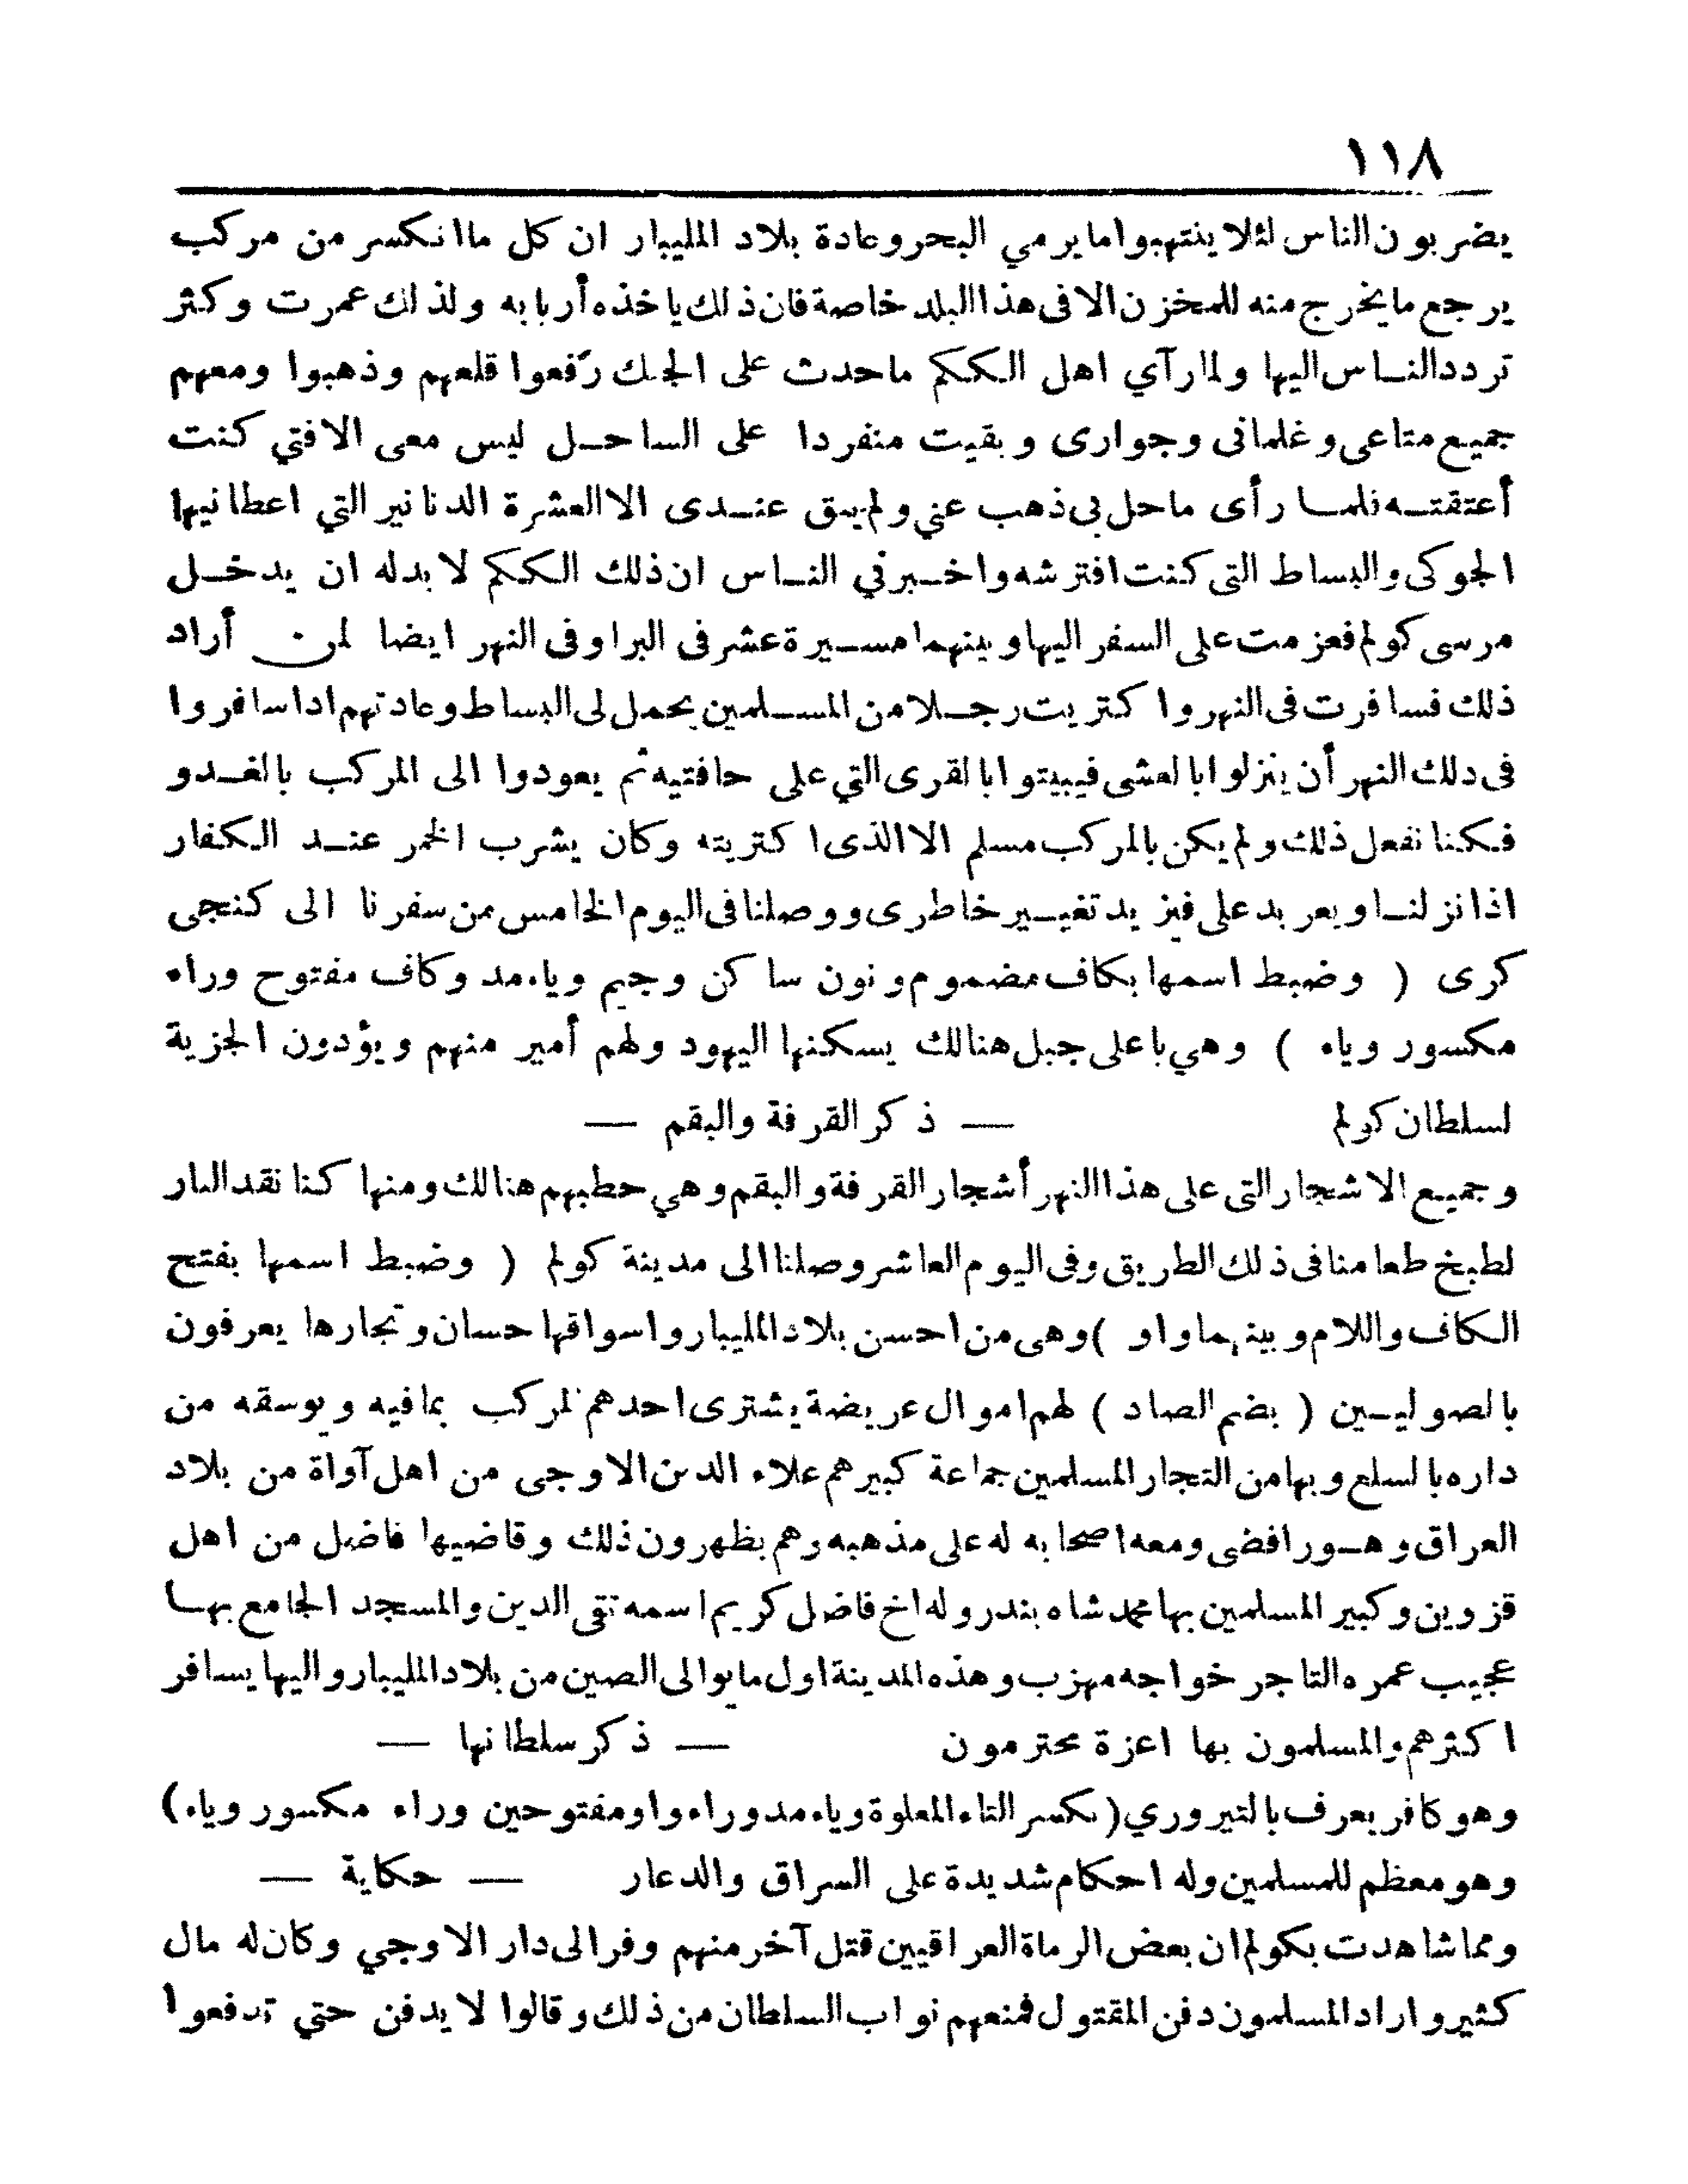 ١١٨
يضربون الناس لئلا ينتهبوا ما يرمي البحر وعادة بلاد المليبار ان كل ما انكسر من مركب
يرجع ما يخرج منه للمخزن الا في هذا البلد خاصة فان ذلك ياخذه أربابه ولذلك عمرت وكثر
تردد النـاس اليها ولما رآي اهل الككم ما حدث على الجنك رفعوا قلعهم وذهبوا ومعهم
جميع متاعي وغلماني وجواري وبقيت منفردا على الساحـل ليس معى الا فتي كنت
أعتقتـه فلمـا رأى ما حل بي ذهب عني ولم يبق عنـدى الا العشرة الدنانير التي اعطانيها
الجوكى والبساط التى كنت افترشه واخـبرني النـاس ان ذلك الككم لا بد له ان يدخـل
مرسى كولم فعزمت على السفر اليها وبينهما مسـيرة عشر فى البر او فى النهر ايضا لمن أراد
ذلك فسافرت فى النهر واكتريت رجـلا من المسـلمين يحمل لى البساط وعادتهم اذا سافروا
فى ذلك النهر أن ينزلوا بالعشى فيبيتوا بالقرى التي على حافتيه ثم يعودوا الى المركب بالغـدو
فكنا نفعل ذلك ولم يكن بالمركب مسلم الا الذى اكتريته وكان يشرب الخمر عنـد الكفار
اذا نزلنـا ويعربد على فيزيد تغيـير خاطرى ووصلنا فى اليوم الخامس من سفرنا الى كنجى
كرى ( وضبط اسمها بكاف مضموم ونون ساكن وجيم وياء مد وكاف مفتوح وراء
مكسور وياء ) وهي باعلى جبل هنالك يسكنها اليهود ولهم أمير منهم ويؤدون الجزية
لسلطان كولم — ذكر القرفة والبقم —
وجميـع الاشجار التى على هذا النهر أشجار القرفة والبقم وهي حطبهم هنالك ومنها كنا نقد النار
لطبخ طعامنا فى ذلك الطريق وفى اليوم العاشر وصلنا الى مدينة كولم ( وضبط اسمها بفتح
الكاف واللام وبينهما واو ) وهى من احسن بلاد المليبار واسواقها حسان وتجارها يعرفون
بالصوليـين ( بضم الصاد ) لهم اموال عريضة يشترى احدهم المركب بما فيه ويوسقه من
داره بالسلع وبها من التجار المسلمين جماعة كبيرهم علاء الدين الاوجى من اهل آواة من بلاد
العراق وهـو رافضى ومعه اصحابه له على مذهبه وهم يظهرون ذلك وقاضيها فاضل من اهل
قزوين وكبير المسلمين بها محمد شاه بندر وله اخ فاضل كريم اسمه تقى الدين والمسجد الجامع بهـا
عجيب عمره التاجر خواجه مهزب وهذه المدينة اول ما يوالى الصين من بلاد المليبار واليها يسافر
اكثرهم والمسلمون بها اعزة محترمون — ذكر سلطانها —
وهو كافر يعرف بالتيروري ( بكسر التاء المعلوة وياء مد وراء واو مفتوحين وراء مكسور وياء )
وهو معظم للمسلمين وله احكام شديدة على السراق والدعار — حكاية —
ومما شاهدت بكولم ان بعض الرماة العراقيين قتل آخر منهم وفر الى دار الاوجي وكان له مال
كثير واراد المسلمون دفن المقتول فمنعهم نواب السلطان من ذلك وقالوا لا يدفن حتي تدفعوا